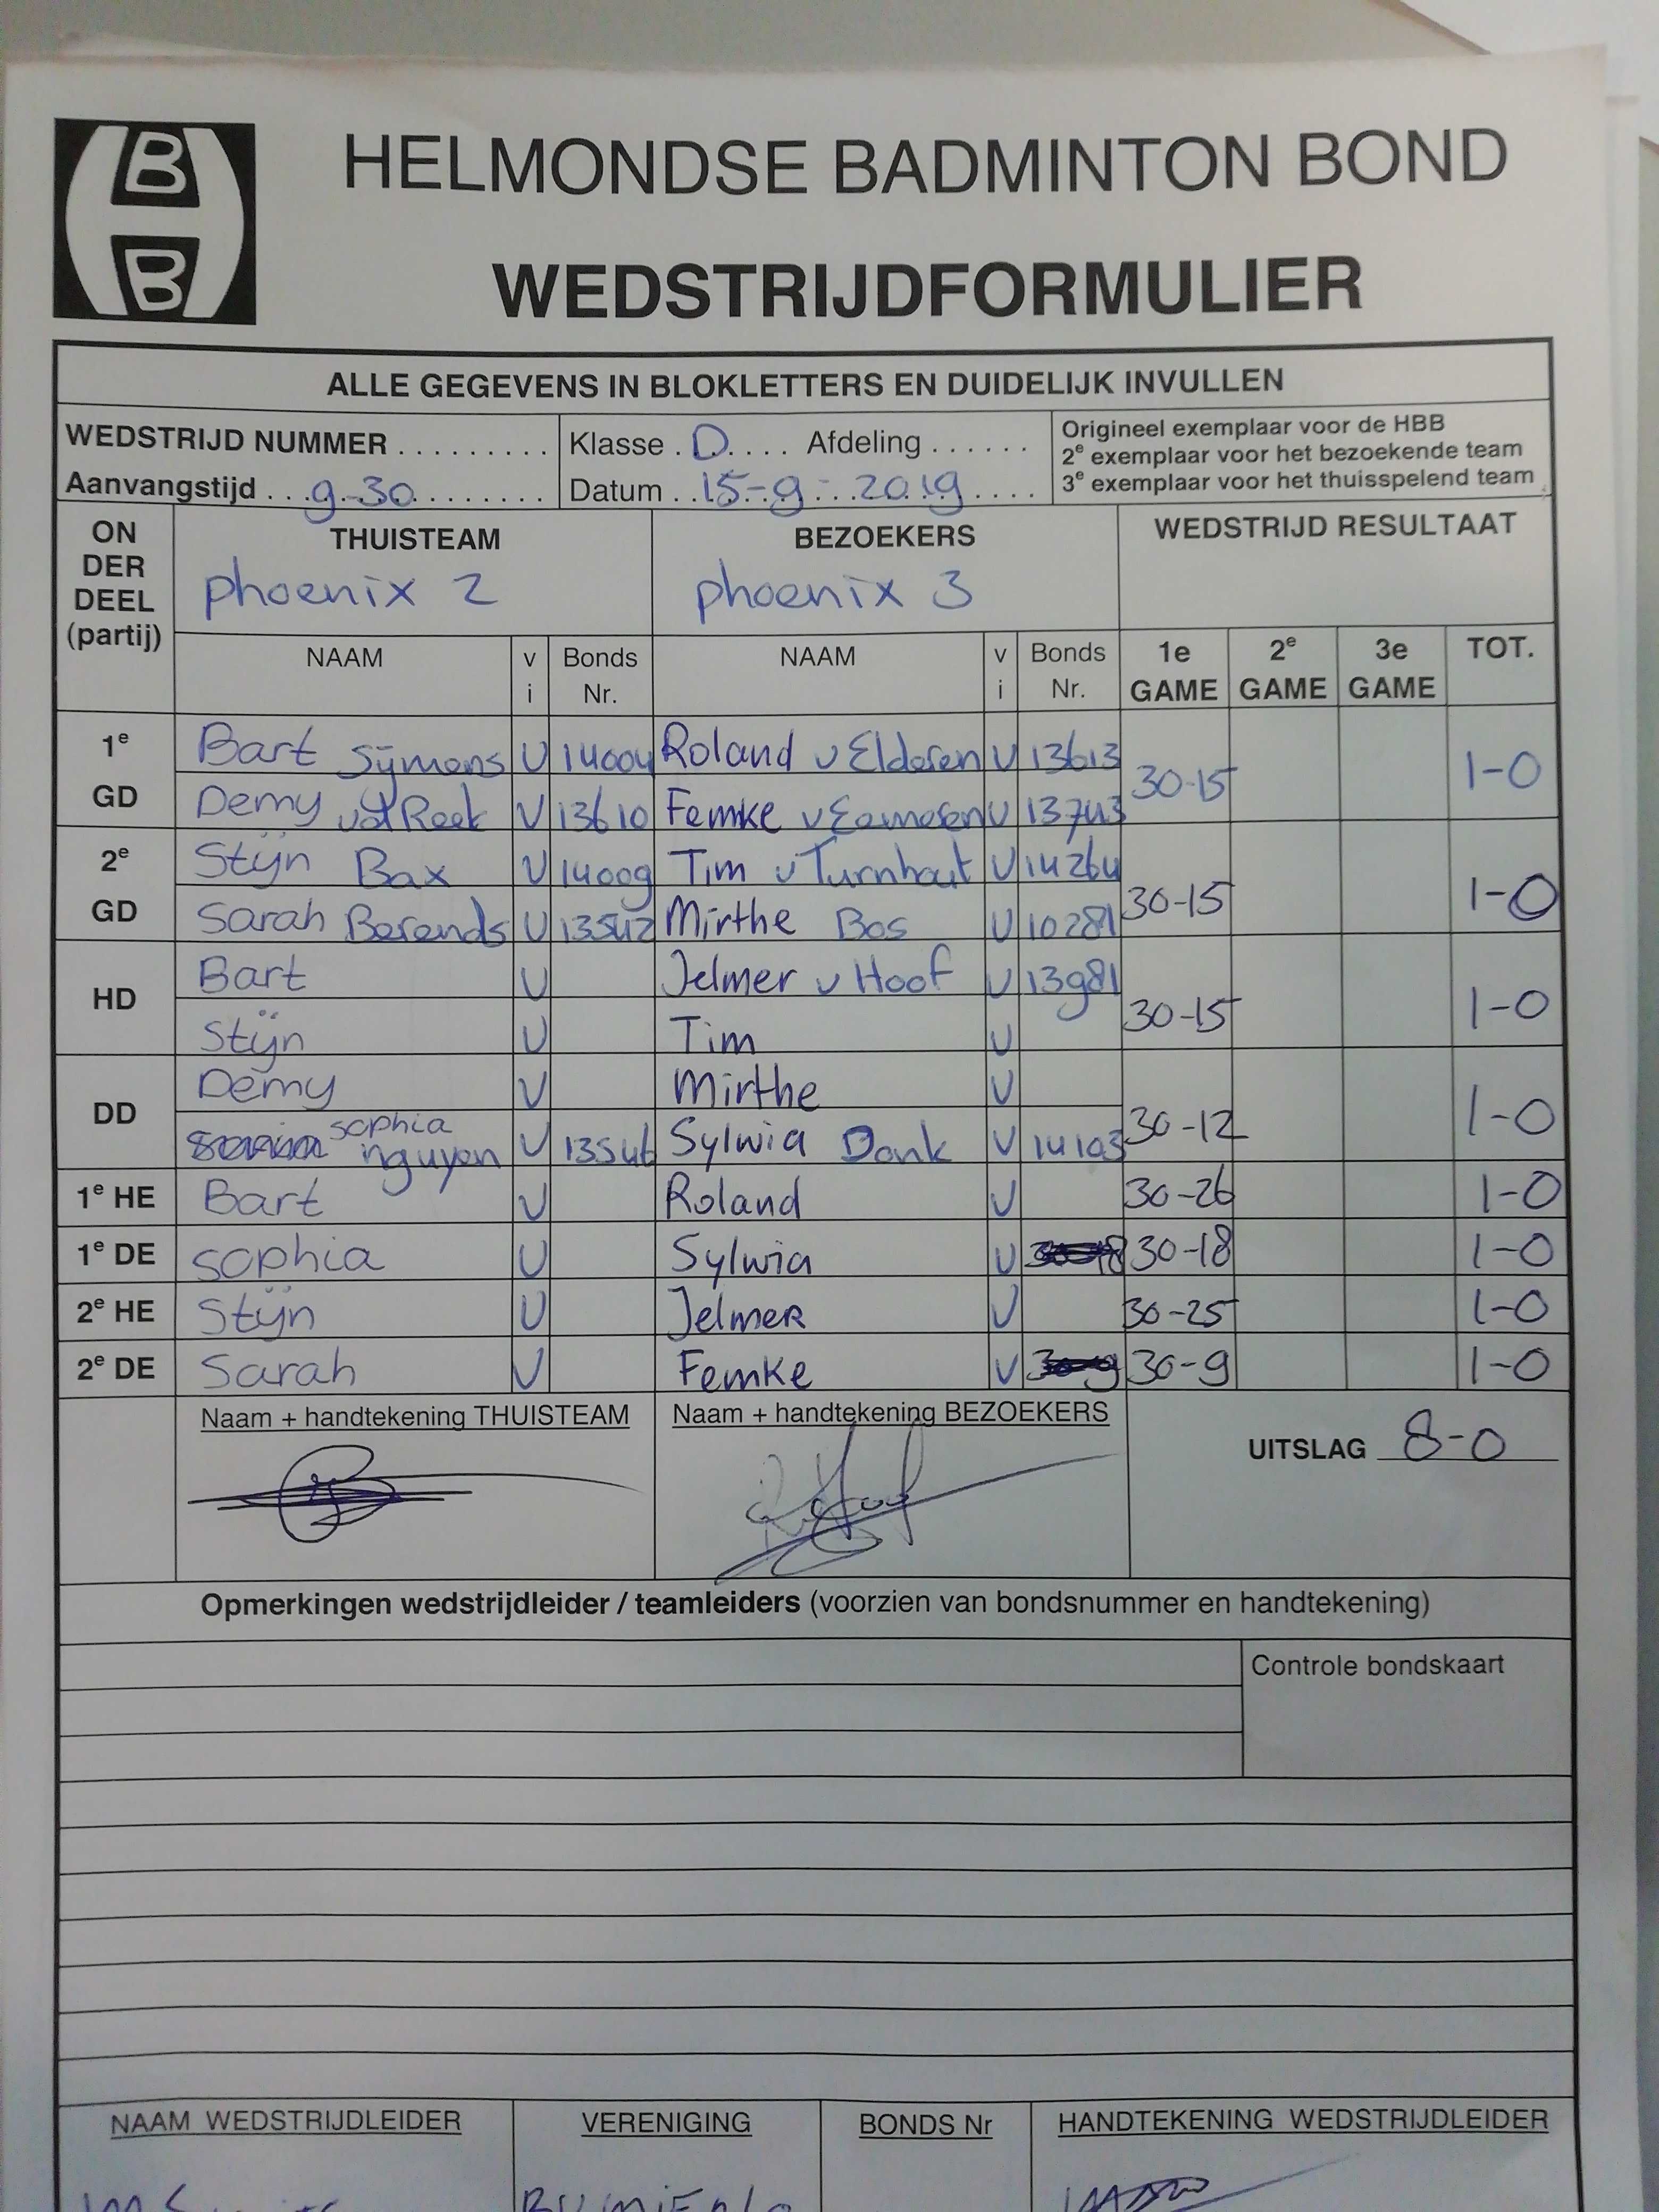 HBB
HELMONDSE BADMINTON BOND
WEDSTRIJDFORMULIER
ALLE GEGEVENS IN BLOKLETTERS EN DUIDELIJK INVULLEN
WEDSTRIJD NUMMER ......... Klasse . D .... Afdeling ......
Aanvangstijd ... 9-30 ....... Datum .. 15-9-2019 ....
Origineel exemplaar voor de HBB
2e exemplaar voor het bezoekende team
3e exemplaar voor het thuisspelend team
ON DER DEEL (partij) THUISTEAM BEZOEKERS WEDSTRIJD RESULTAAT
phoenix 2 phoenix 3
NAAM v i Bonds Nr. NAAM v i Bonds Nr. 1e GAME 2e GAME 3e GAME TOT.
1e GD Bart Sijmons V 14004 Roland v Elderen V 13613 30-15 1-0
Demy vd Reek V 13610 Femke V 13743
2e GD Stijn Bax V 14009 Tim v Turnhout V 14264 30-15 1-0
Sarah Berends V 13542 Mirthe Bos V 10281
HD Bart V Jelmer v Hoof V 13981 30-15 1-0
Stijn V Tim V
DD Demy V Mirthe V 30-12 1-0
sophia nguyen V 13546 Sylwia Donk V 14103
1e HE Bart V Roland V 30-26 1-0
1e DE sophia V Sylwia V 30-18 1-0
2e HE Stijn V Jelmer V 30-25 1-0
2e DE Sarah V Femke V 30-9 1-0
Naam + handtekening THUISTEAM Naam + handtekening BEZOEKERS
UITSLAG 8-0
Opmerkingen wedstrijdleider / teamleiders (voorzien van bondsnummer en handtekening)
Controle bondskaart
NAAM WEDSTRIJDLEIDER VERENIGING BONDS Nr HANDTEKENING WEDSTRIJDLEIDER